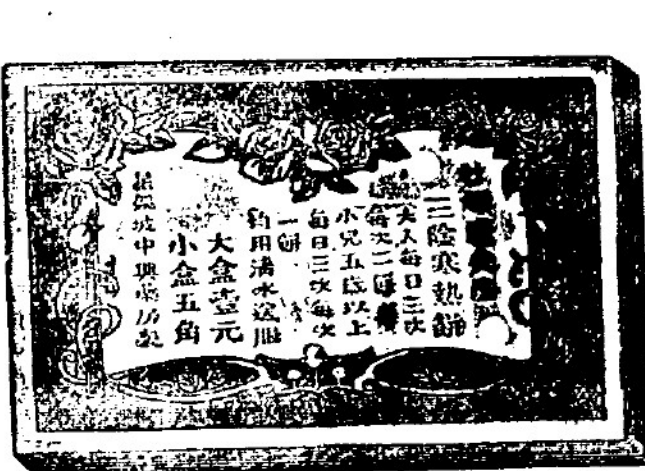 三陰寒熱餅
大人每日三次
每次二餅
小兒五歲以上
每日三次每次
一餅
均用清水送服
大盒壹元
小盒五角
城中興藥房製